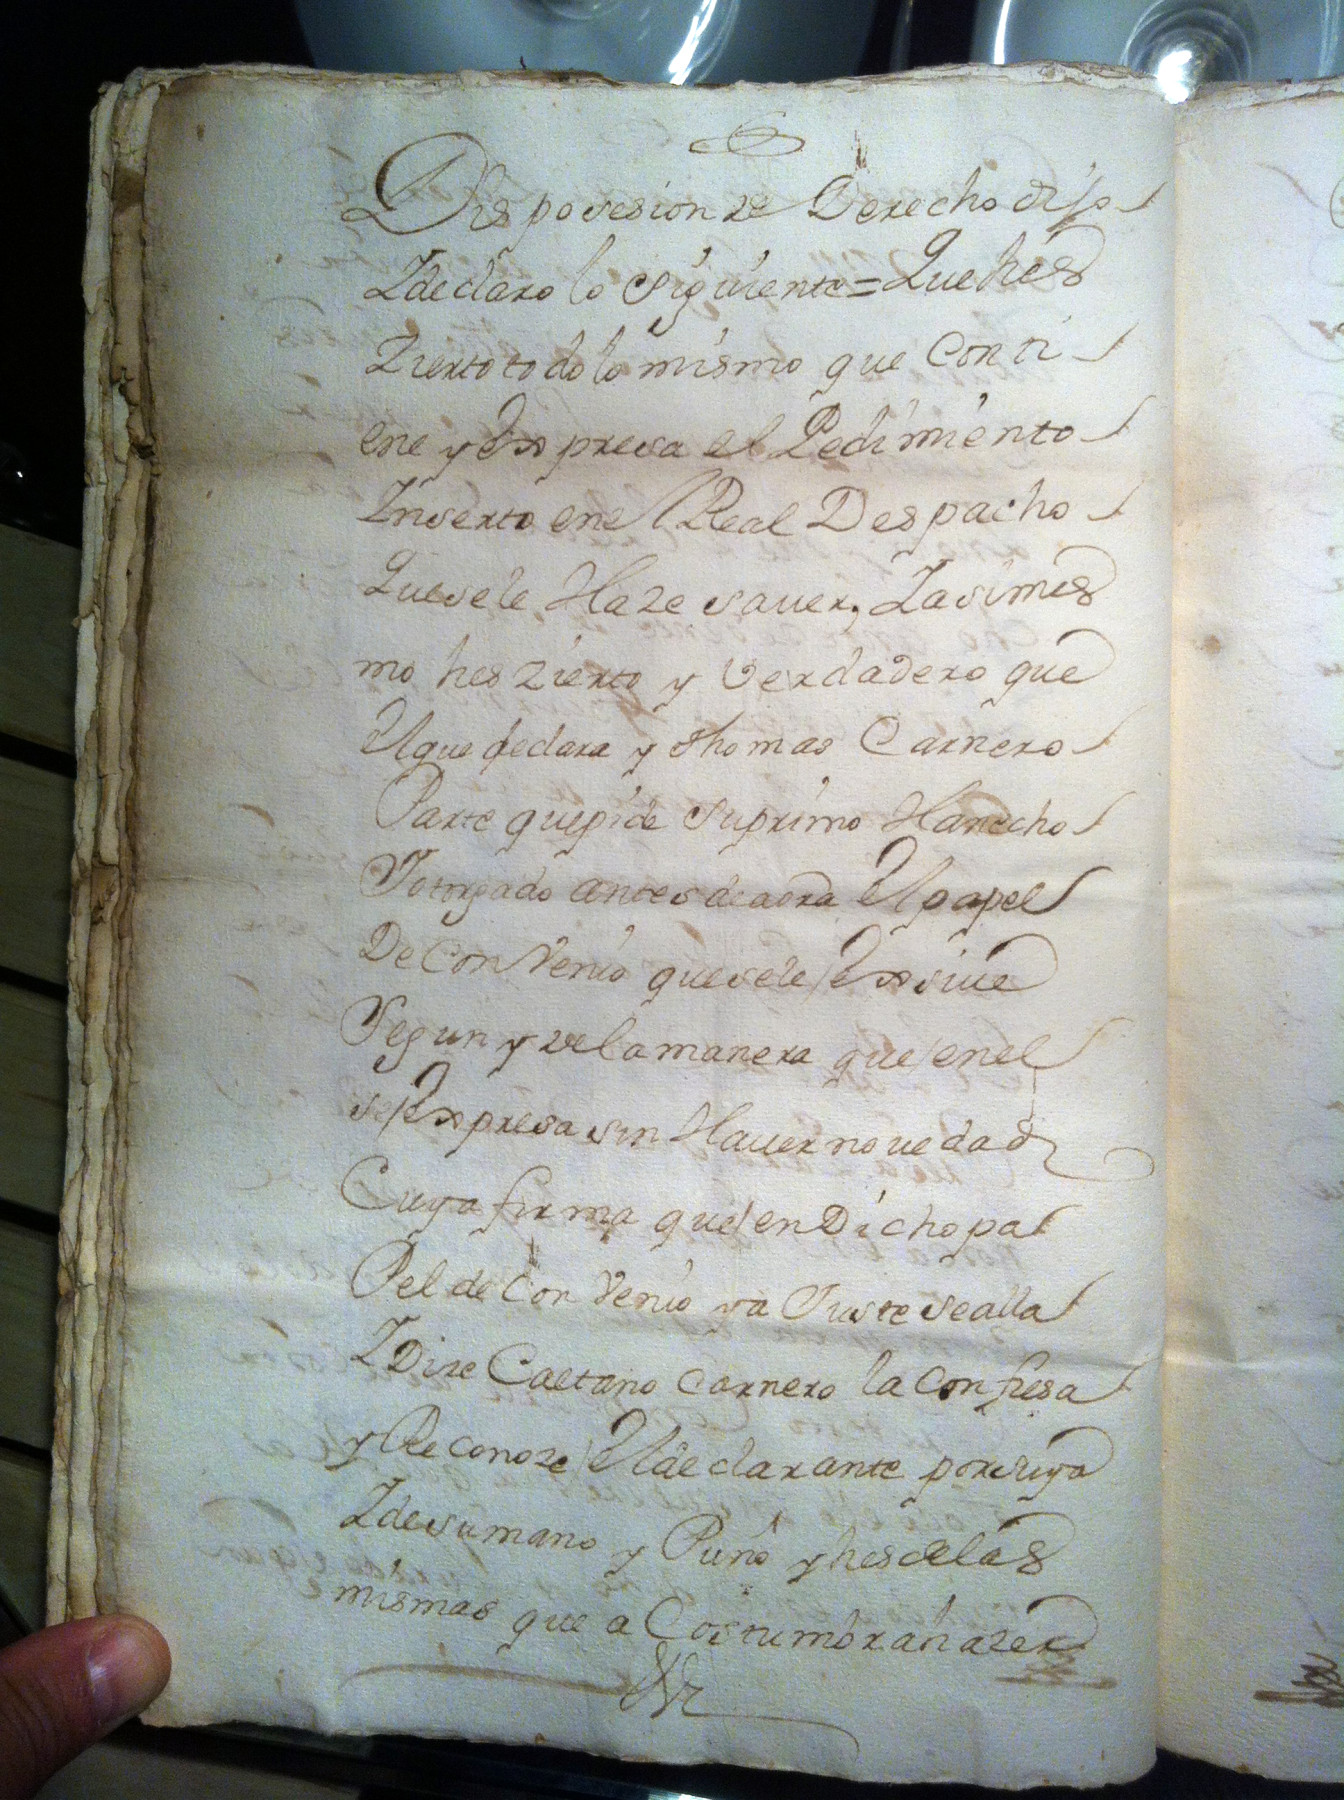 Disposesion de Derecho dijo
Ydeclaro lo siguiente = Que hes
Zierto todo lo mismo que Conti
ene y Expresa el Pedimiento
Inserto enel Real Despacho
Quesele Haze sauer, Yasimes
mo hes zierto y verdadero que
Elque declara y Thomas Carnero
Parte quepide suprimo Hanecho
Yotorgado antes deaora Elpapel
De ConVenio quesele Exsiue
Segun y de lamanera que enel
se Expresa sin Hauer nouedad
Cuya firma que en Dicho pa
Pel de ConVenio va Puste sealla
YDize Caetano Carnero la Confiesa
y Reconoze Eldeclarante porsuya
Ydesumano y Puño y hes delas
mismas que aCostumbrahazer